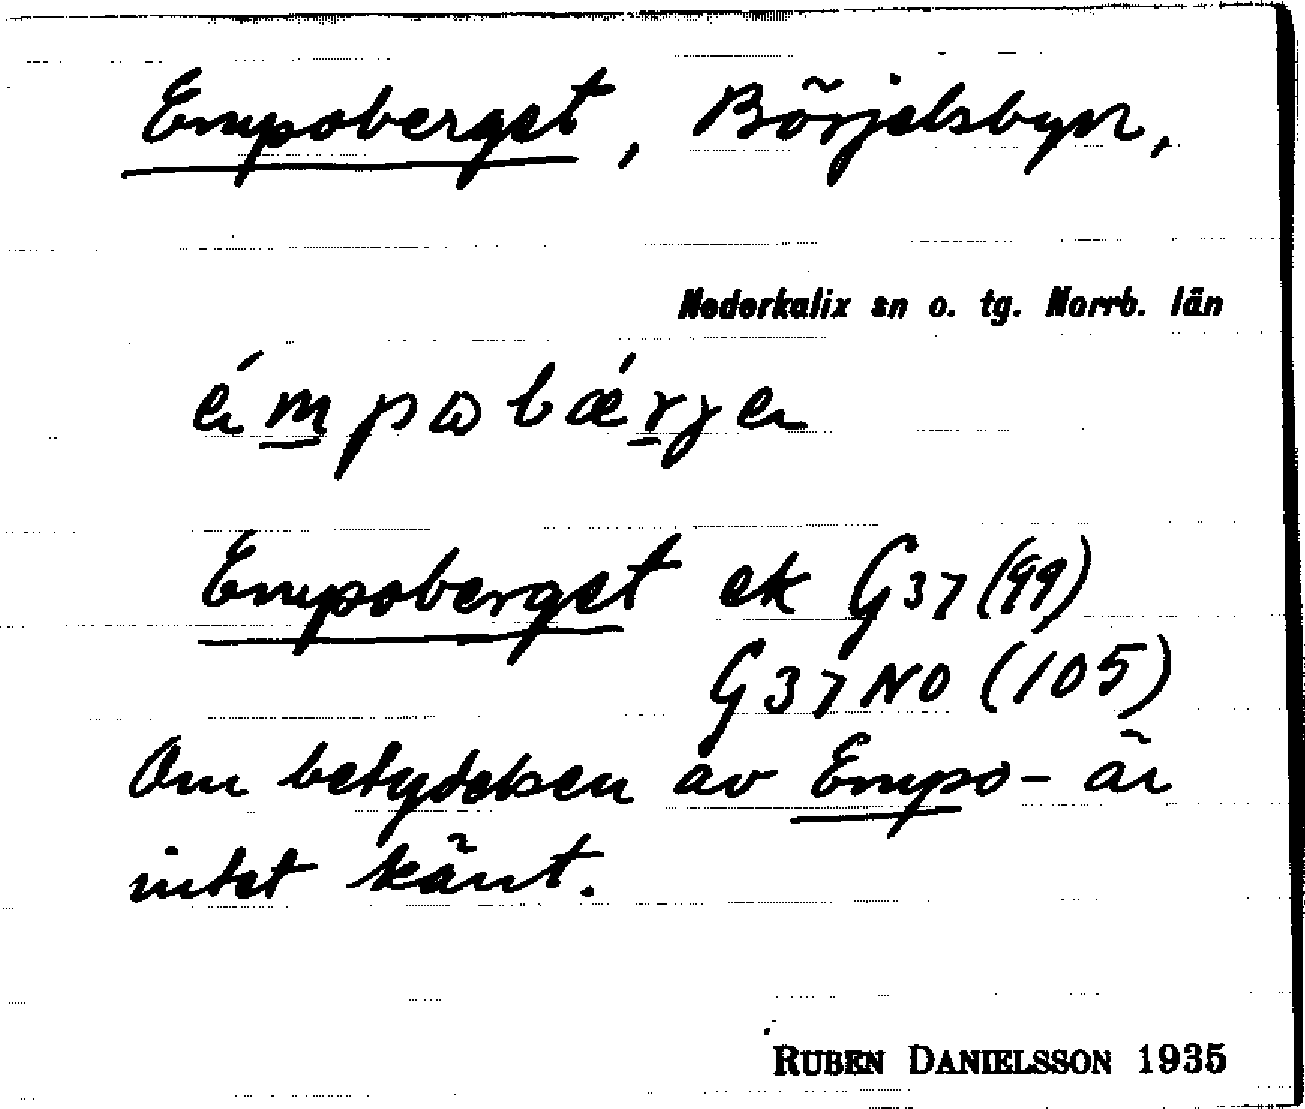 Empoberget, Börjelsbyn,
Nederkalix sn o. tg. Norrb. län
émpɷbǽrjen
Empoberget ek G37 (99)
G37 NO (105)
Om betydelsen av Empo- är
intet känt.
RUBEN DANIELSSON 1935